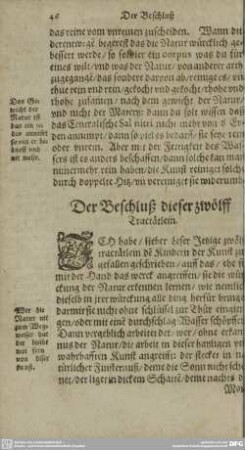 46 Der Beschluß
das reine vom unreinen zuscheiden. Wann
bessert werde / so
eines wilt / vnd was der Natur / von anderer arth
zugegangē / das sondere
thue rein vnd rein / gekocht vnd gekocht / rohe vnd
rohe zusamen / nach dem gewicht der Natur /
vnd nicht der Matery: dann du solt wissen daß
das Centralische Sal nitri nicht mehr von der Erd
den annimpt / dann so viel es bedarff / sie seye rein
oder vnrein. Aber mit der Fettigkeit des Was-
sers ist es anders beschaffen / dann solche kan man
nimermehr rein haben / die Kunst reiniget solche
durch doppelte Hitz / vñ vereiniget sie widerumb
Das Ge-
wicht der
Natur ist
das ein je-
der
so viel er be-
darff vnd
nit mehr.
Der Beschluß dieser zwölff
Tractätlein.
ICH habe / lieber Leser Jetzige zwölff
tractätlein dē Kindern der Kunst zu
gefallen geschrieben / auff das / ehe sie
mit der Hand das werck angreiffen / sie die wür-
ckung der Natur erkennen lernen / wie nemlich
dieselb in jrer würckung alle ding herfür bringt
darmit sie nicht ohne schlüssel zur Thür eingien-
gen / oder mit einē durchschlag Wasser schöpffen
Dann vergeblich arbeitet der / wer / ohne erkant-
nus der Natur / die arbeit in dieser heiligen vnd
wahrhafften Kunst angreifft: der stecket in na-
türlicher Finsternuß / deme die Sonn nicht schei-
net / der ligt in dickem Schatte / deme nachts der
Mon
Wer die
Natur nit
zum Weg-
weiser hat
der bleibt
war fern
von dieser
Kunst.